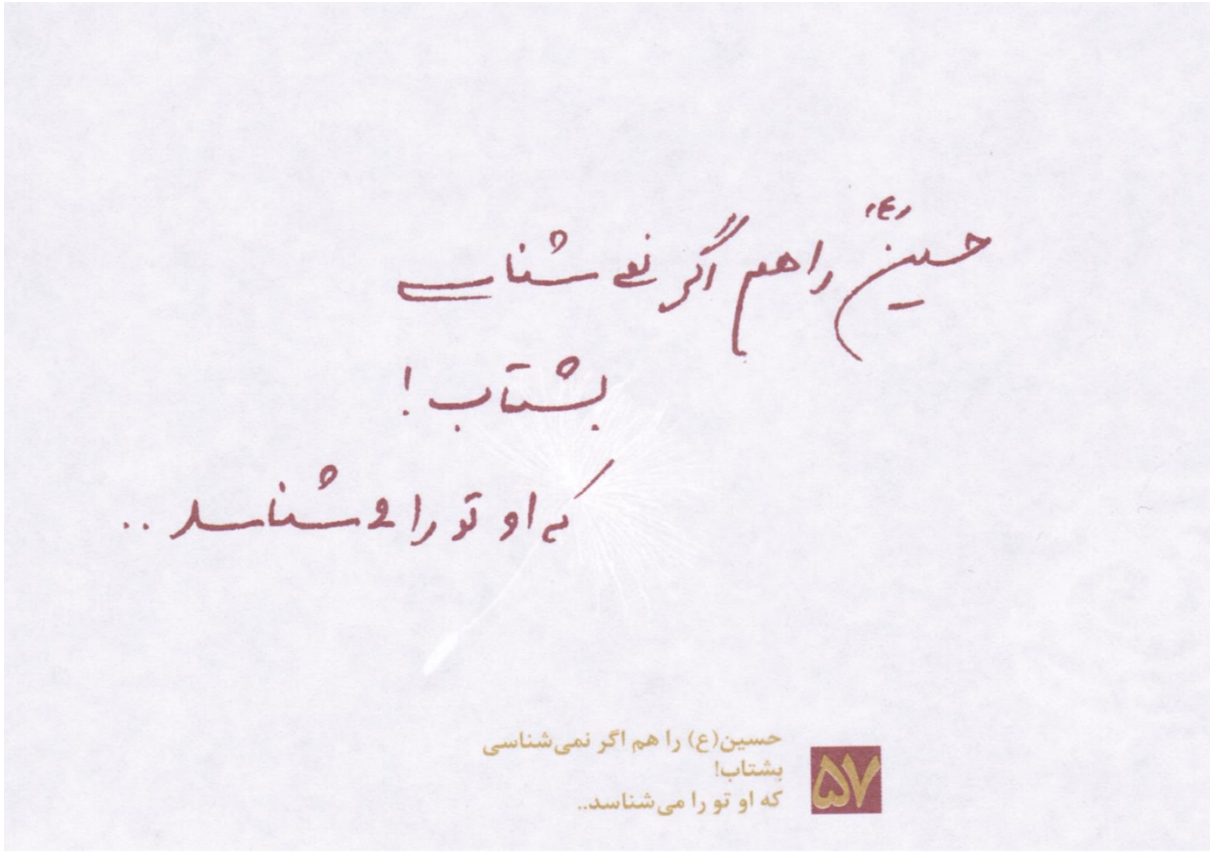 حسین (ع) را هم اگر نمی شناسی
بشتاب!
که او تو را می شناسد..
حسین(ع) را هم اگر نمی‌شناسی
بشتاب!
که او تو را می‌شناسد..
۵۷